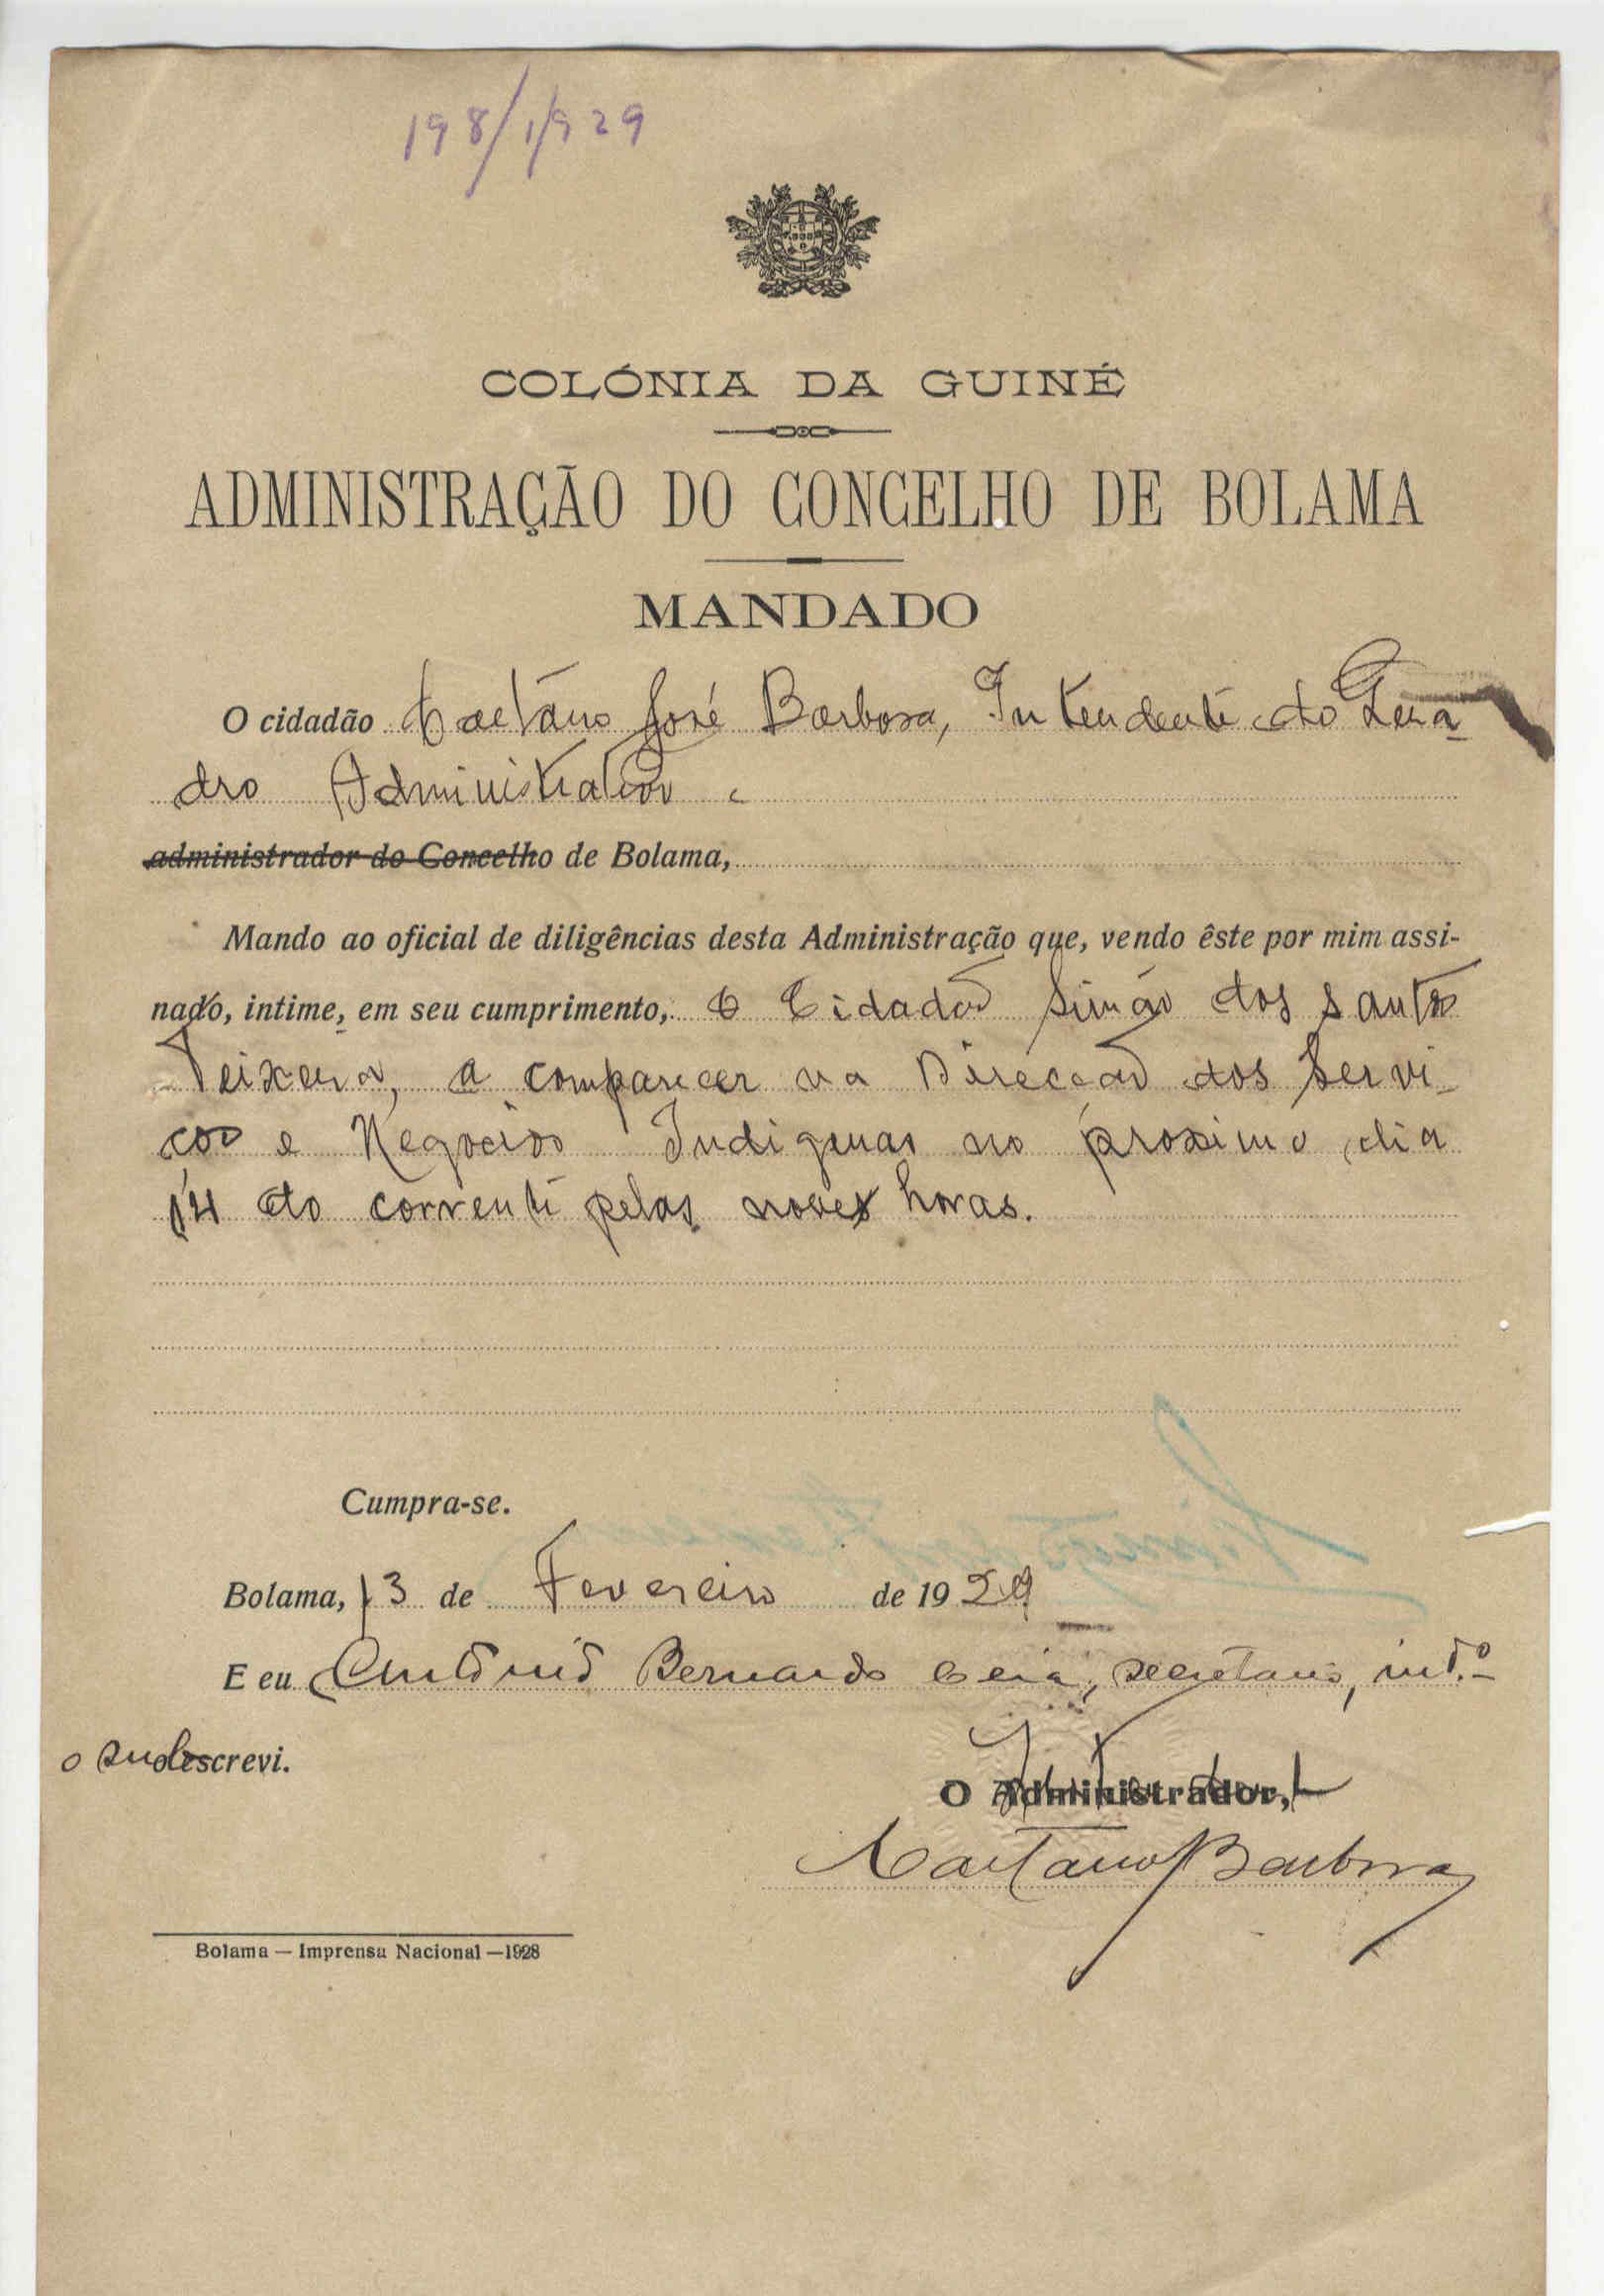 198/1929
COLÓNIA DA GUINÉ
ADMINISTRAÇÃO DO CONCELHO DE BOLAMA
MANDADO
O cidadão Caetano José Barbosa, Intendente do Qua-
dro Administrativo e
administrador do Concelho de Bolama,
Mando ao oficial de diligências desta Administração que, vendo êste por mim assi-
nado, intime, em seu cumprimento, o Cidadão Simão dos Santos
Teixeira, a comparecer na Direcção dos Servi-
ços e Negocios Indigenas no proximo dia
14 do corrente pelas nove horas.
Cumpra-se.
Bolama, 13 de Fevereiro de 1929
E eu António Bernardo Ceia, secretario, int.º
o subscrevi.
O Administrador,
Caetano Barbosa
Bolama — Imprensa Nacional — 1928